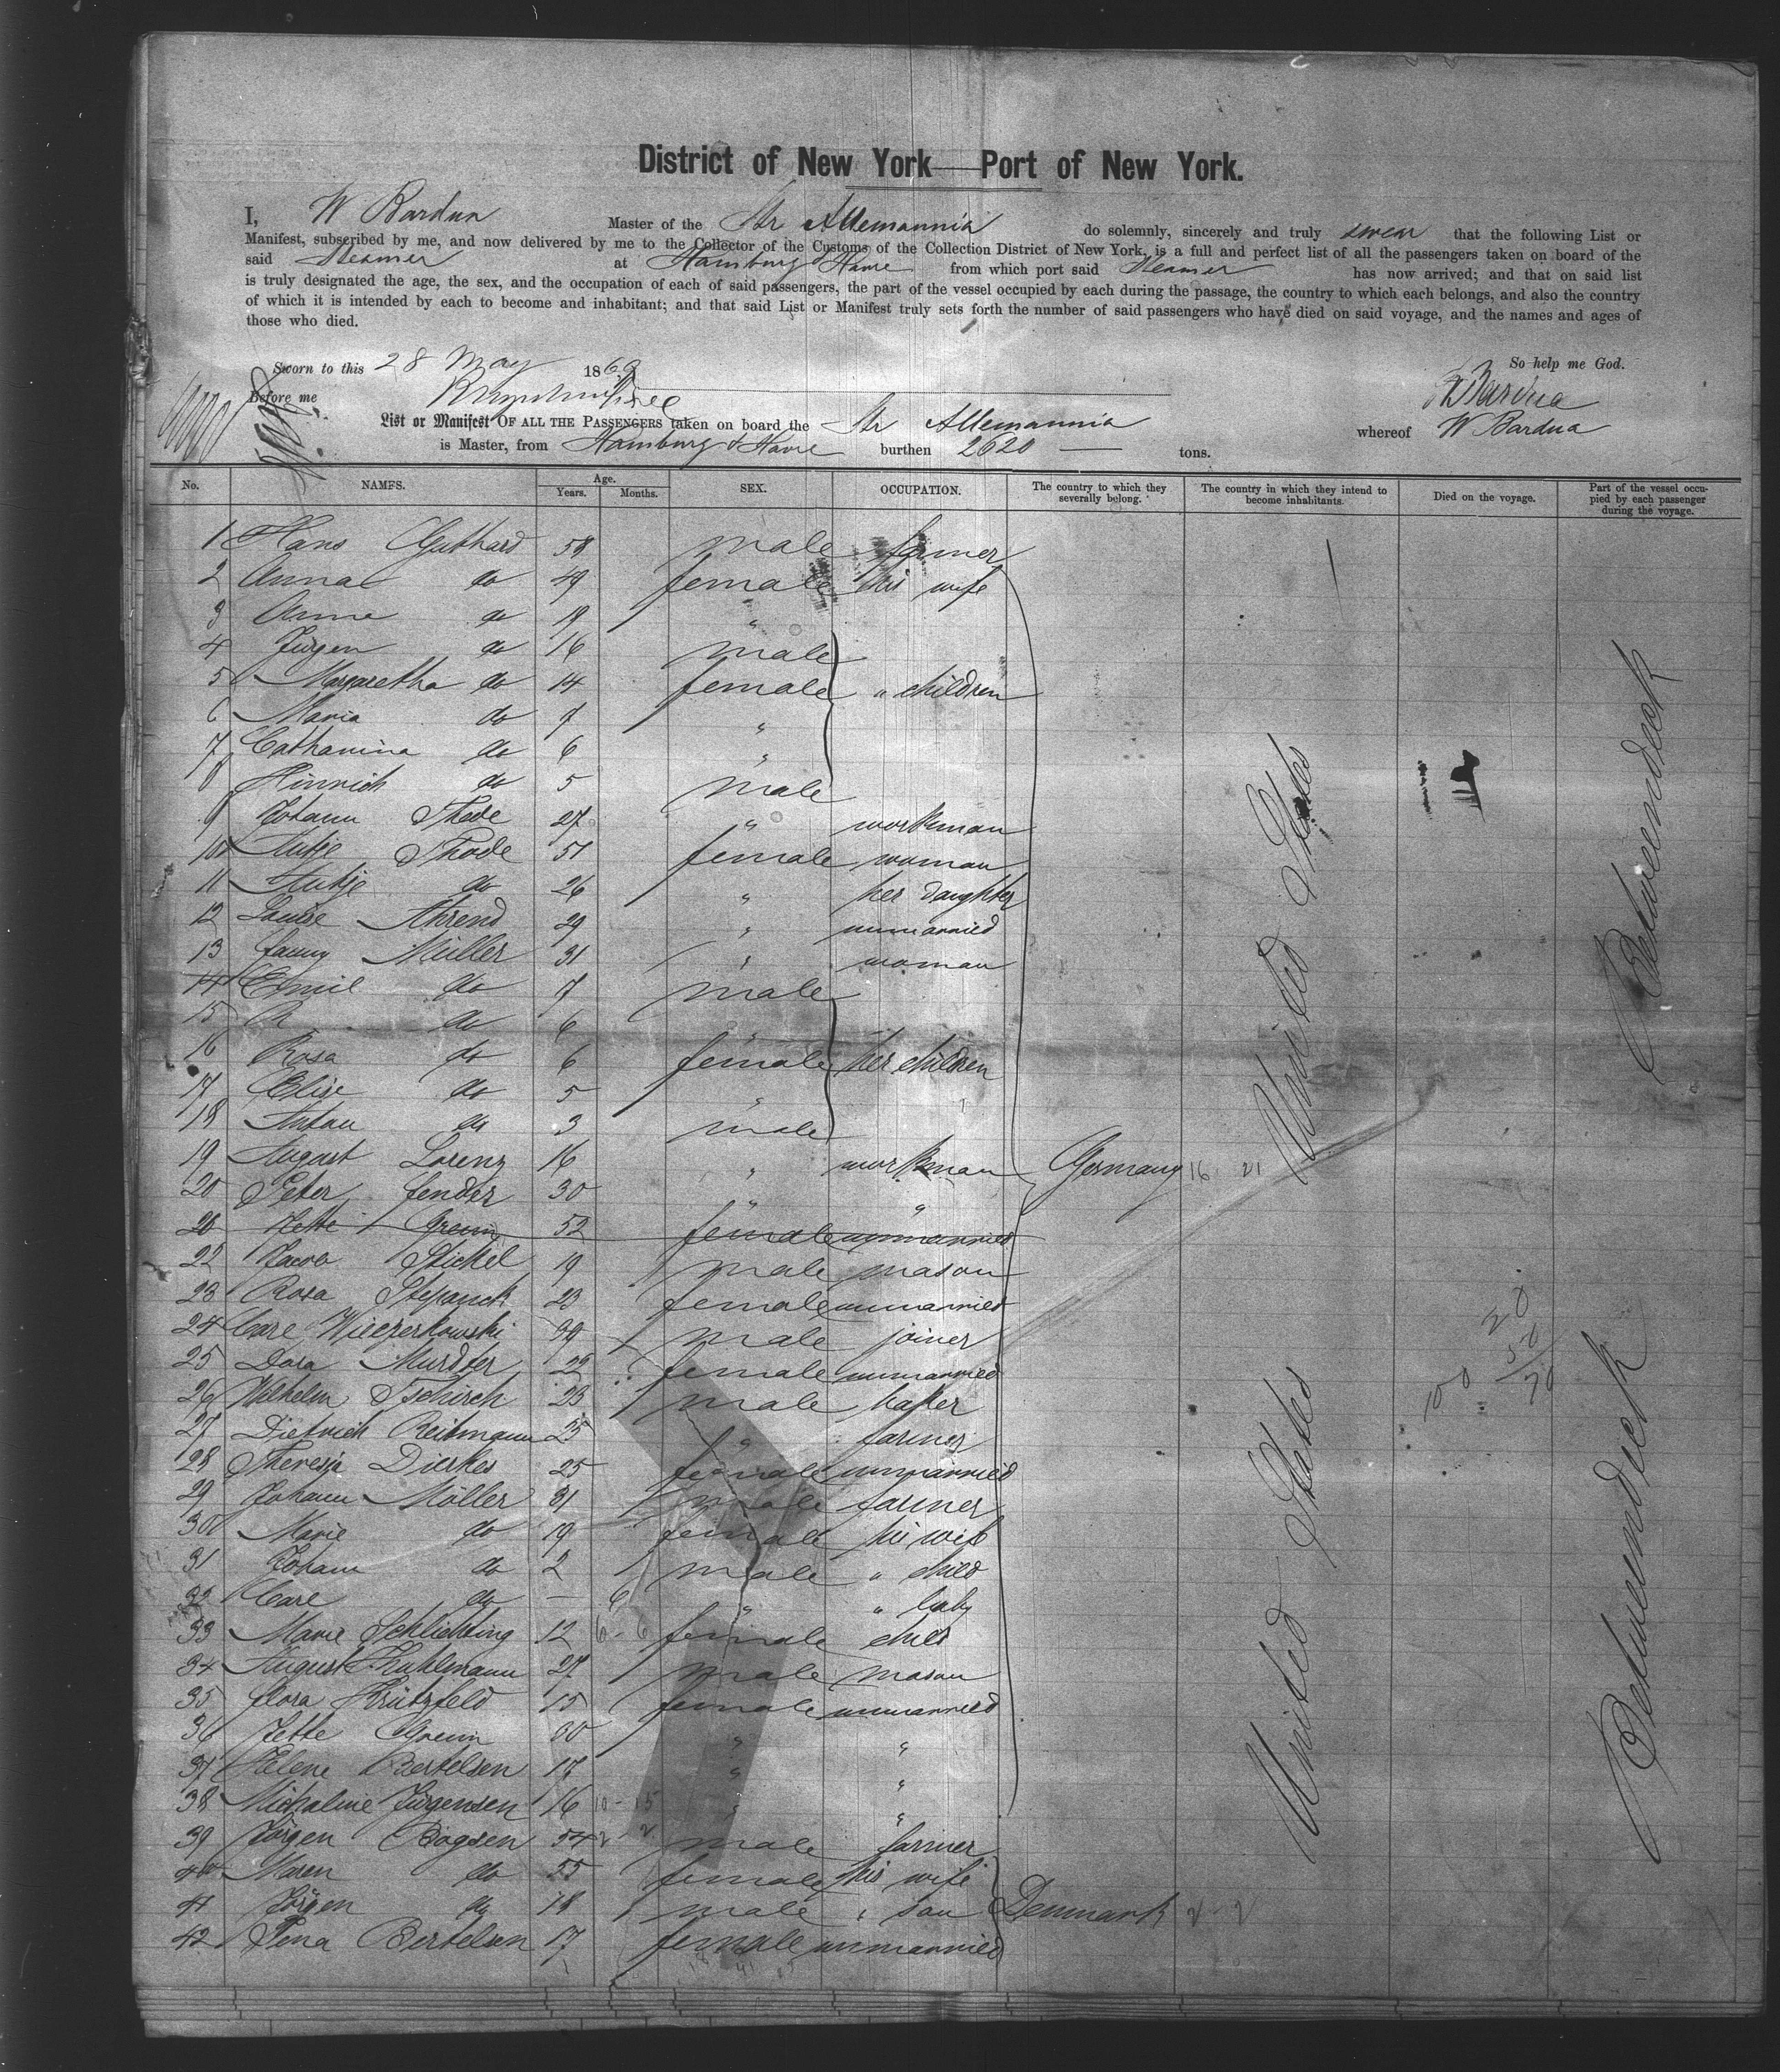 District of New York — Port of New York.
I, W Bardua Master of the Str Allemannia do solemnly, sincerely and truly swear that the following List or
Manifest, subscribed by me, and now delivered by me to the Collector of the Customs of the Collection District of New York, is a full and perfect list of all the passengers taken on board of the
said Steamer at Hamburg & Havre from which port said Steamer has now arrived; and that on said list
is truly designated the age, the sex, and the occupation of each of said passengers, the part of the vessel occupied by each during the passage, the country to which each belongs, and also the country
of which it is intended by each to become and inhabitant; and that said List or Manifest truly sets forth the number of said passengers who have died on said voyage, and the names and ages of
those who died.
Sworn to this 28 May 1869 So help me God.
Before me W Bardua
List or Manifest OF ALL THE PASSENGERS taken on board the Str Allemannia whereof W Bardua
is Master, from Hamburg & Havre burthen 2620 — tons.
No. NAMES. Age. Years. Months. SEX. OCCUPATION. The country to which they severally belong. The country in which they intend to become inhabitants. Died on the voyage. Part of the vessel occupied by each passenger during the voyage.
1 Hans 58 male farmer
2 Anna do 49 female his wife
3 Anna do 19 "
4 Jürgen do 16 male
5 Margaretha do 14 female " children
6 Maria do 7 "
7 Catharina do 6 "
8 Hinrich do 5 male
9 Johann Thode 27 " workman
10 Thode 51 female woman
11 do 26 " her daughter
12 Louise Ahrend 29 " unmarried
13 Fanny Müller 31 " woman
14 Emil do 7 male
15 do 6 "
16 Rosa do 6 female her children
17 Elise do 5 "
18 Anton do 3 male
19 August Lorenz 16 " workman Germany
20 Peter Fender 30 " "
Jette Greun 52 female unmarried
22 Stickel 19 male mason
23 Rosa Stepanek 23 female unmarried
24 Carl Wieczerkowski 39 male joiner
25 Dora 22 female unmarried
26 Wilhelm Tschirch 23 male baker
27 Dietrich Reitmann 25 " farmer
28 Theresia Dierkes 25 female unmarried
29 Johann Möller 31 male farmer
30 Marie do 19 female his wife
31 Johann do 2 male " child
32 Carl do — 6 " " baby
33 Marie Schlichting 12 female child
34 August Kuhlmann 27 male mason
35 Flora Krützfeld 15 female unmarried
36 Jette Greun 30 " "
37 Helene Bertelsen 17 " "
38 Michaline Jürgensen 16 " "
39 Jörgen Bogsen 54 male farmer
40 Maren do 55 female his wife
41 Jörgen do 18 male " son Denmark
42 Tena Bertelsen 17 female unmarried
United States
United States
Betweendeck
Betweendeck